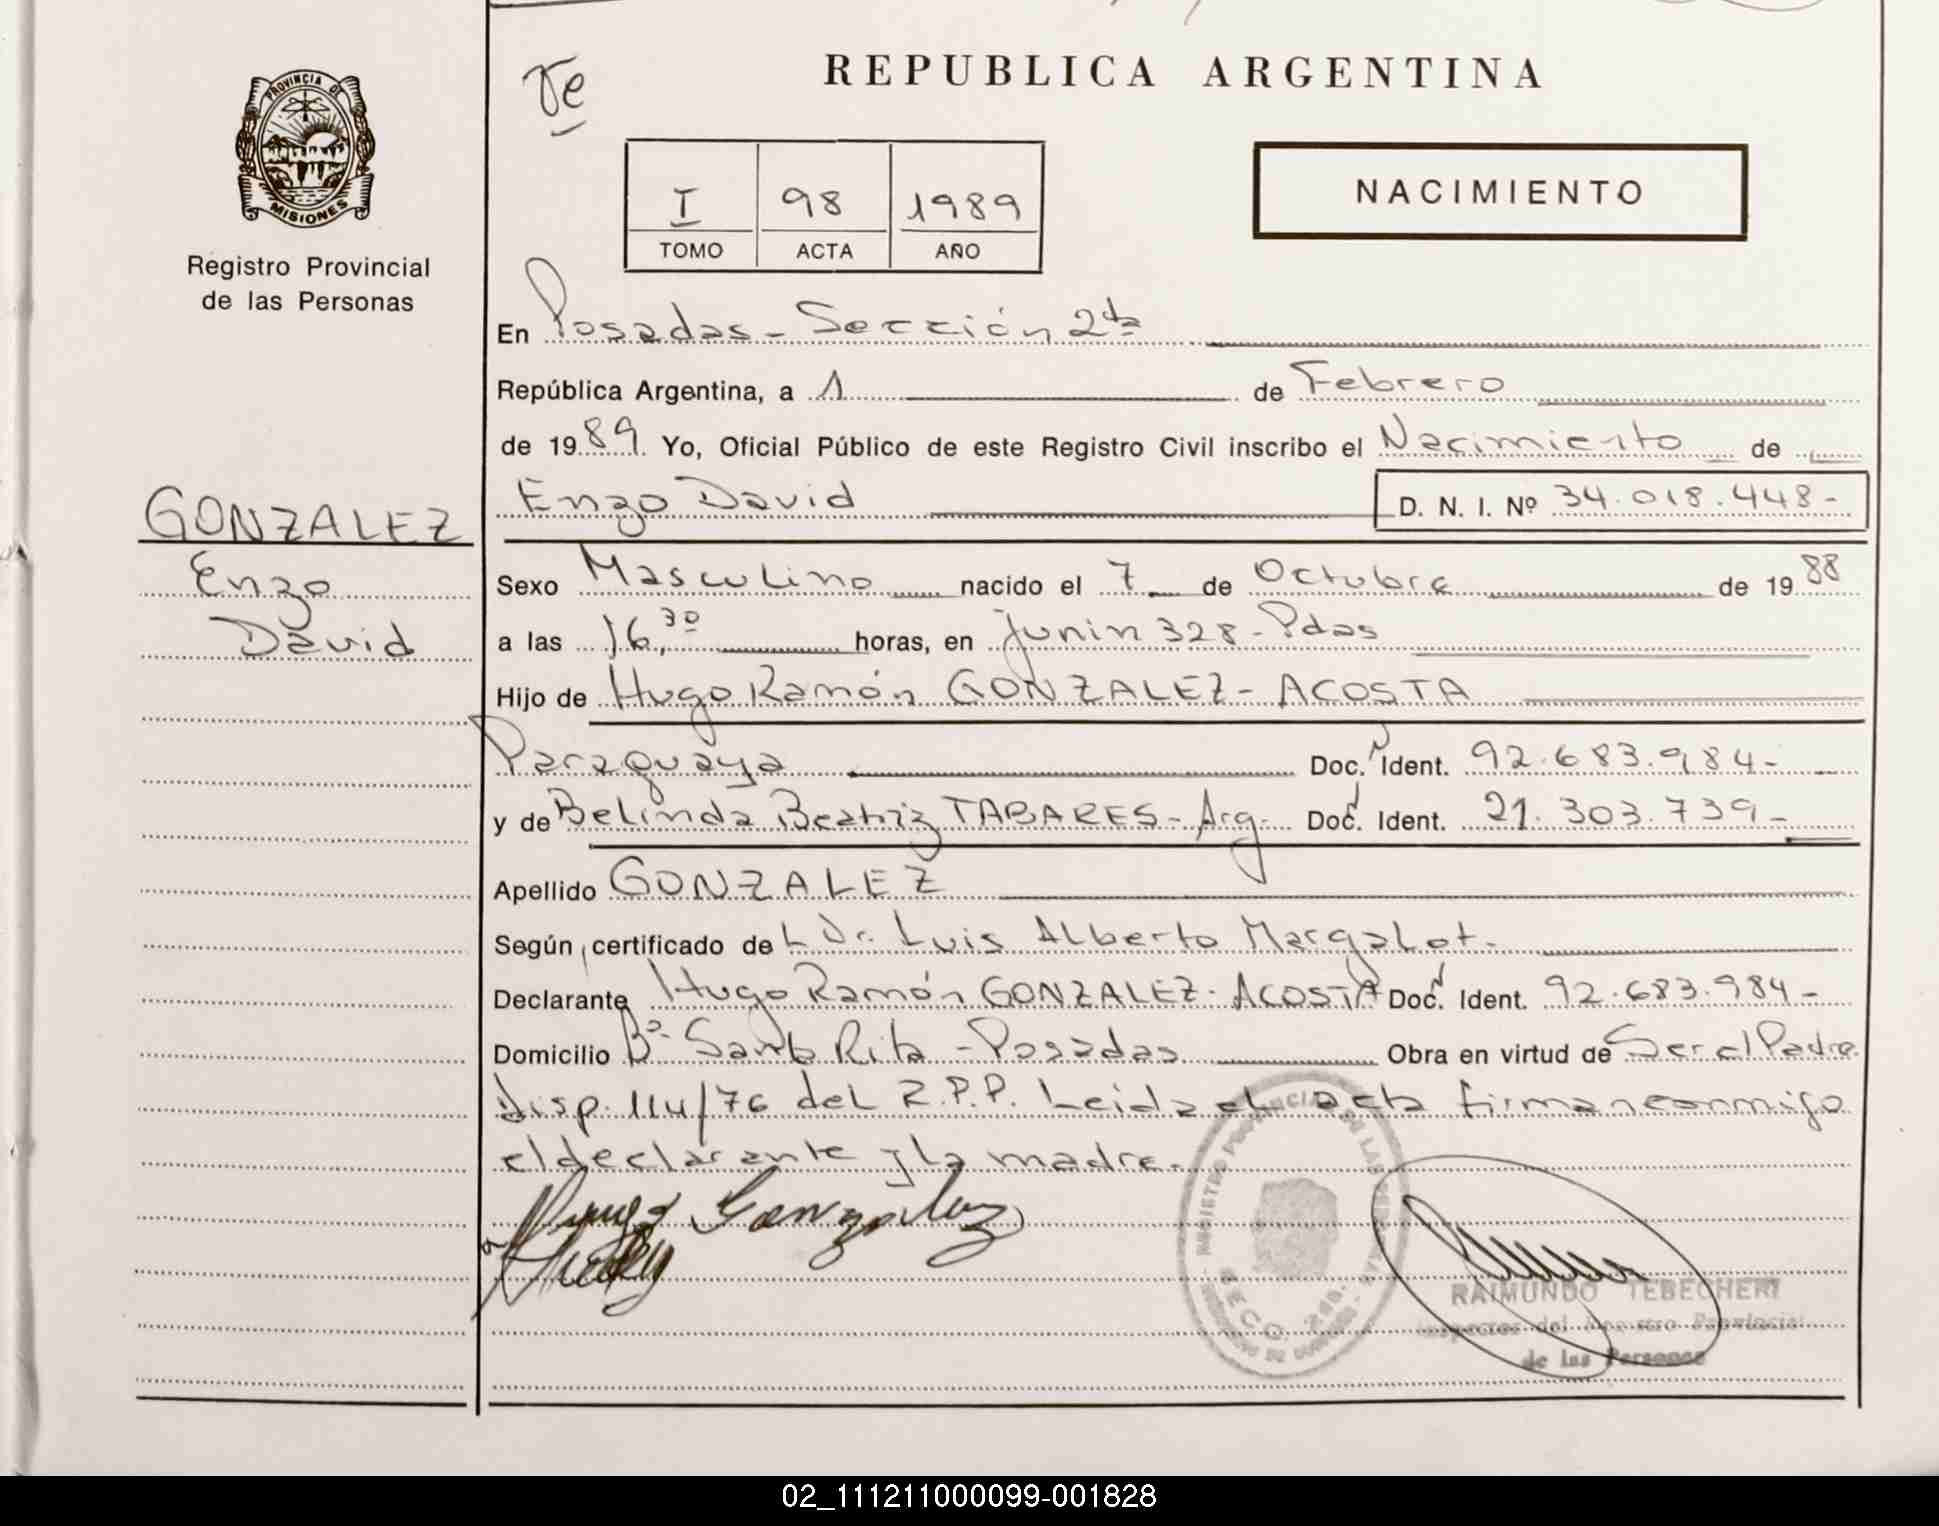 PROVINCIA DE
MISIONES
Registro Provincial
de las Personas
GONZALEZ
Enzo
David
REPUBLICA ARGENTINA
I 98 1989
TOMO ACTA AÑO
NACIMIENTO
En Posadas - Sección 2da
República Argentina, a 1 de Febrero
de 1989 Yo, Oficial Público de este Registro Civil inscribo el Nacimiento de
Enzo David D. N. I. Nº 34.018.448-
Sexo Masculino nacido el 7 de Octubre de 1988
a las 16,30 horas, en Junin 328 - Pdas
Hijo de Hugo Ramón GONZALEZ - ACOSTA
Paraguaya Doc. Ident. 92.683.984-
y de Belinda Beatriz TABARES - Arg. Doc. Ident. 21.303.739-
Apellido GONZALEZ
Según certificado de L Dr. Luis Alberto Margalot.
Declarante Hugo Ramón GONZALEZ - ACOSTA Doc. Ident. 92.683.984-
Domicilio Bº Santa Rita - Posadas Obra en virtud de Ser el Padre
Disp. 114/76 del R.P.P. Leida el acta firman conmigo
el declarante y la madre.
Hugo Gonzalez
RAIMUNDO TEBECHERI
Inspector del Registro Provincial
de las Personas
02_111211000099-001828